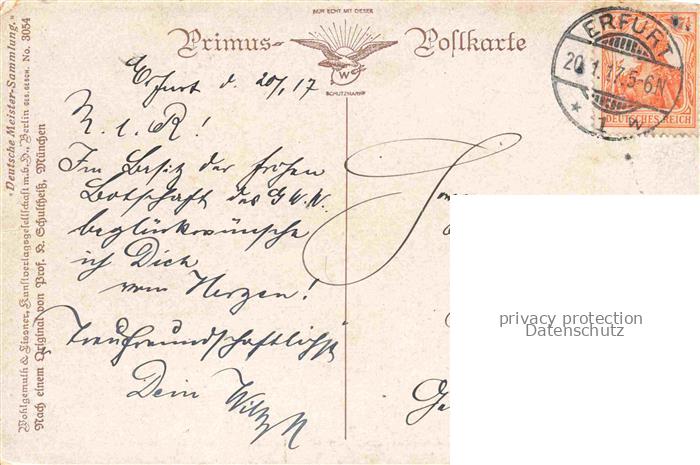 NUR ECHT MIT DIESER
Primus- Postkarte
W
SCHUTZMARKE
ERFURT
20.1.17.5-6N
* 1 w
DEUTSCHES REICH
Erfurt d. 20/1.17
Im Besitz der frohen
Botschaft des
beglückwünsche
ich Dich
vom Herzen!
Treufreundschaftlichst
Dein Willy
"Deutsche Meister-Sammlung."
Wohlgemuth & Lissner, Kunstverlagsgesellschaft m.b.H., Berlin GES. GESCH. No. 3054
Nach einem Original von Prof. K. Schultheiß, München
privacy protection
Datenschutz